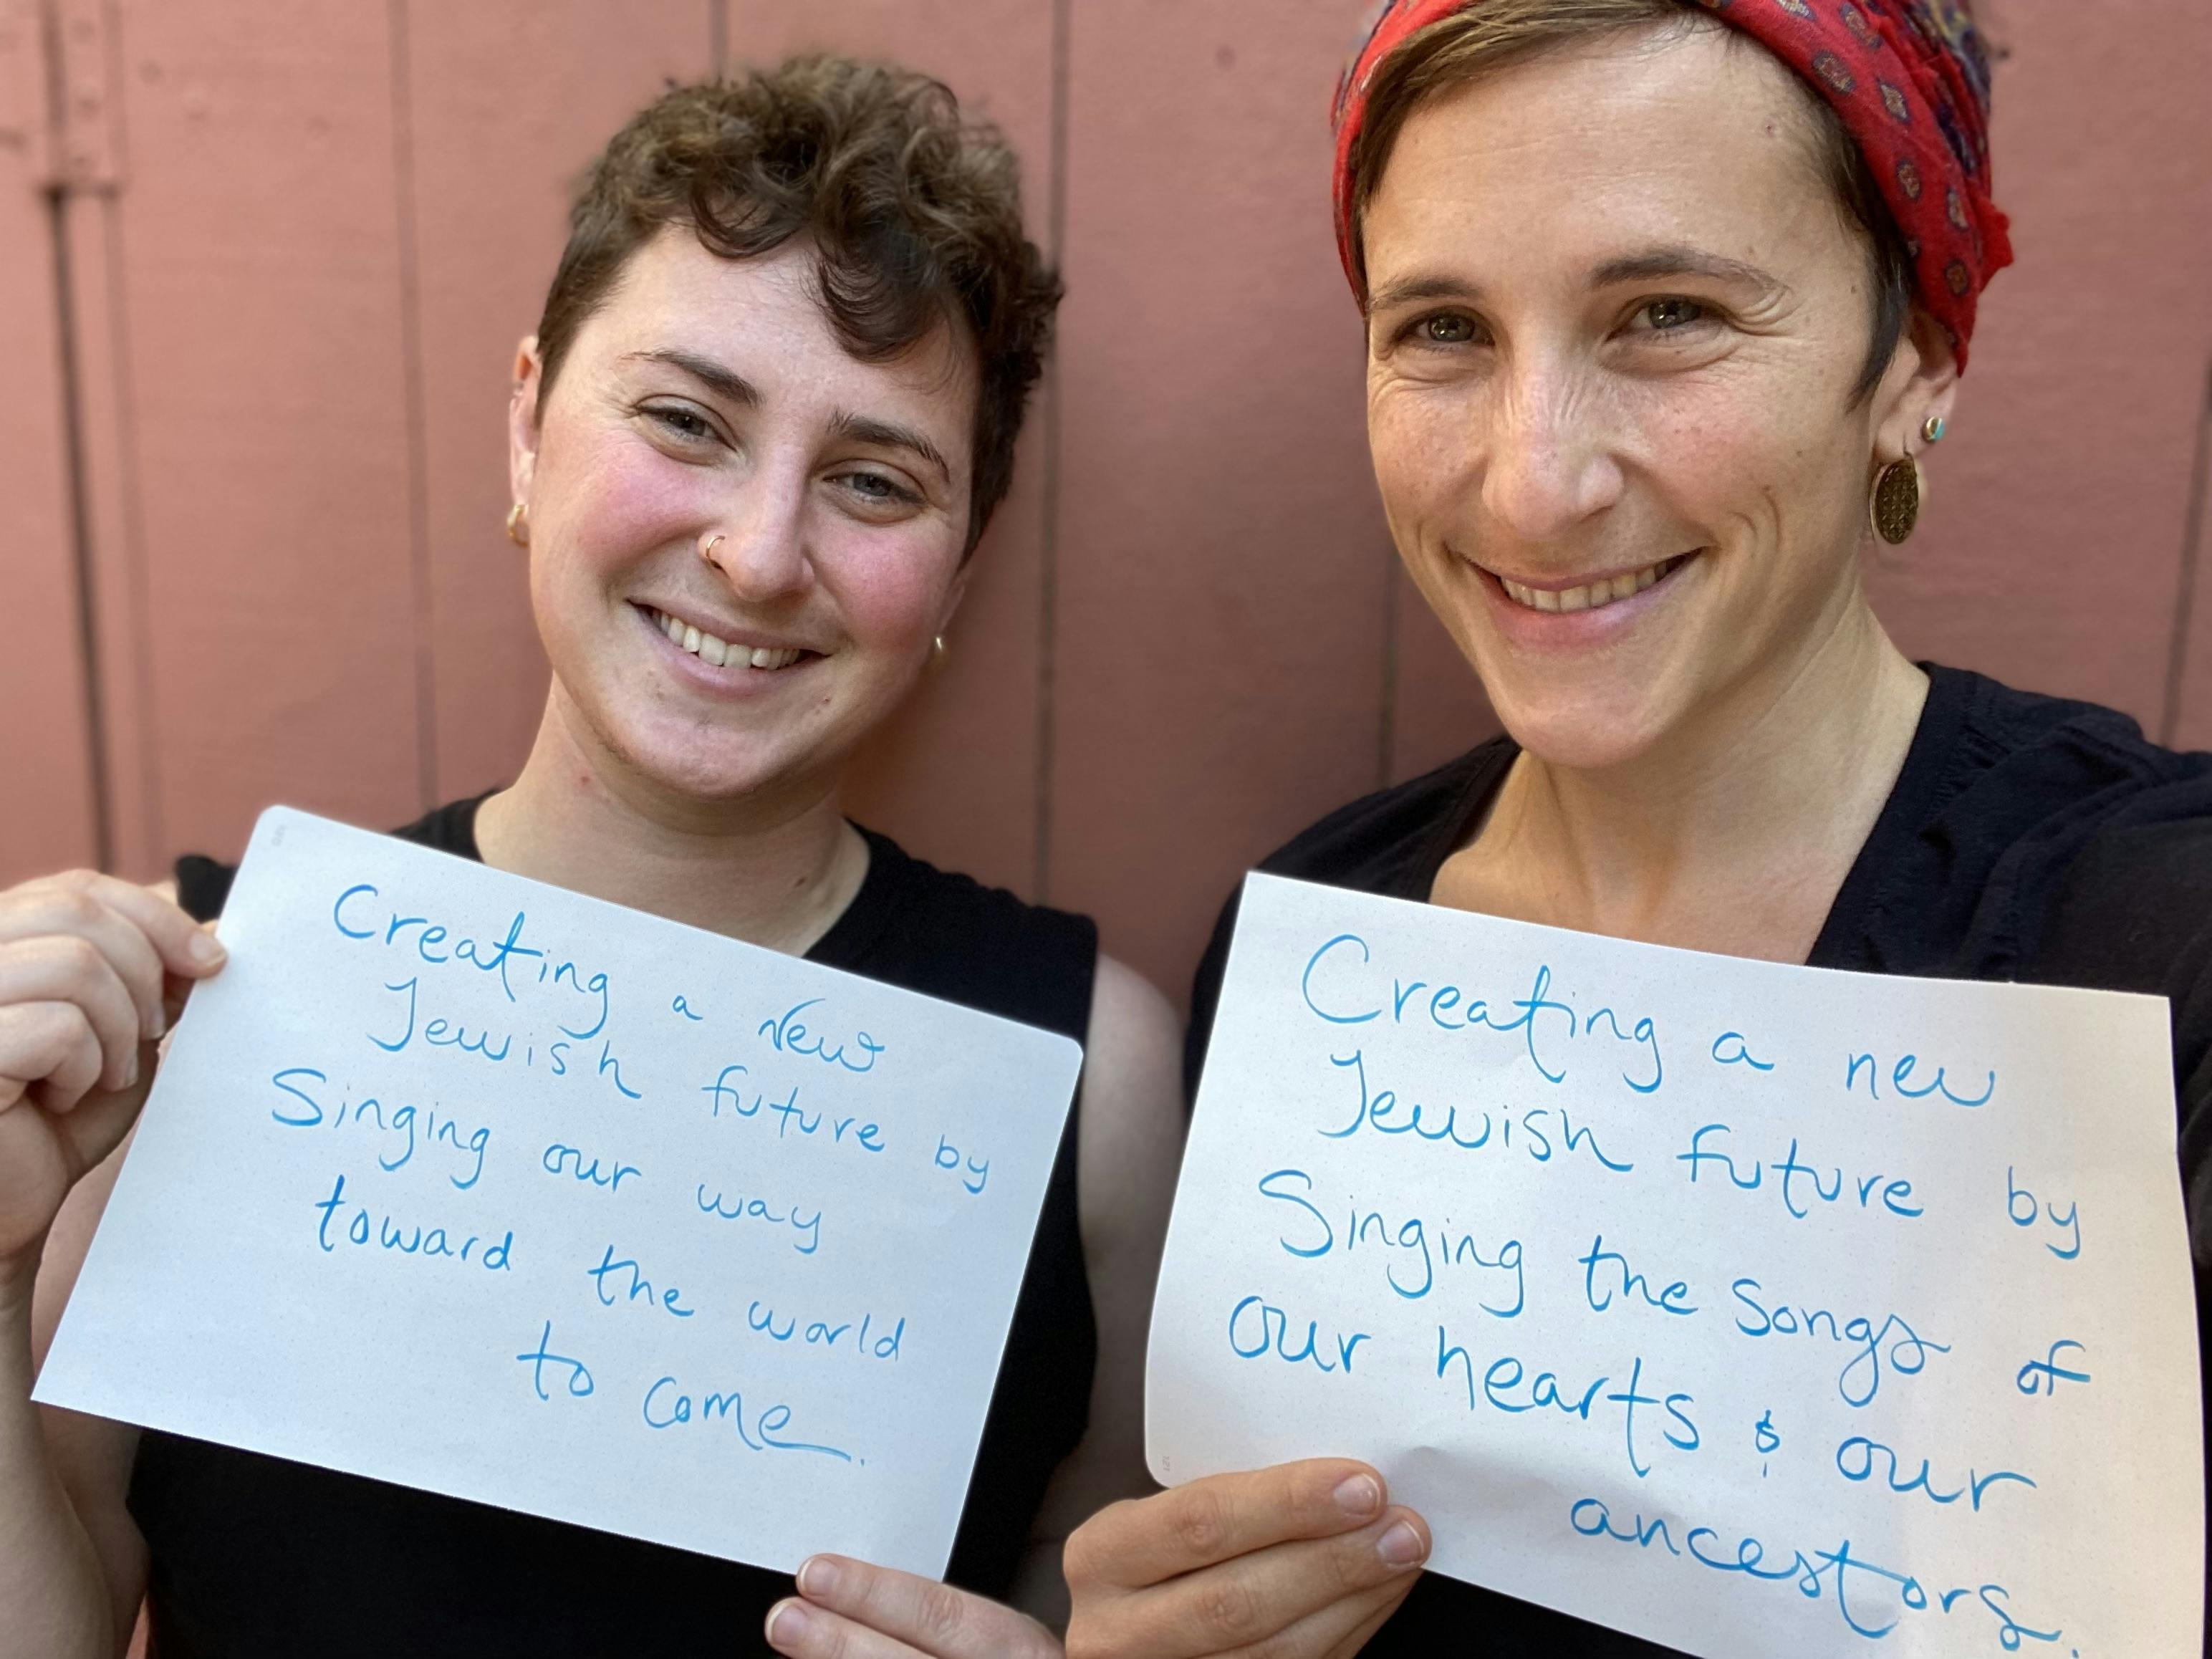 Creating a new
Jewish future by
Singing our way
toward the world
to come.
Creating a new
Jewish future by
Singing the Songs of
our hearts & our
ancestors.